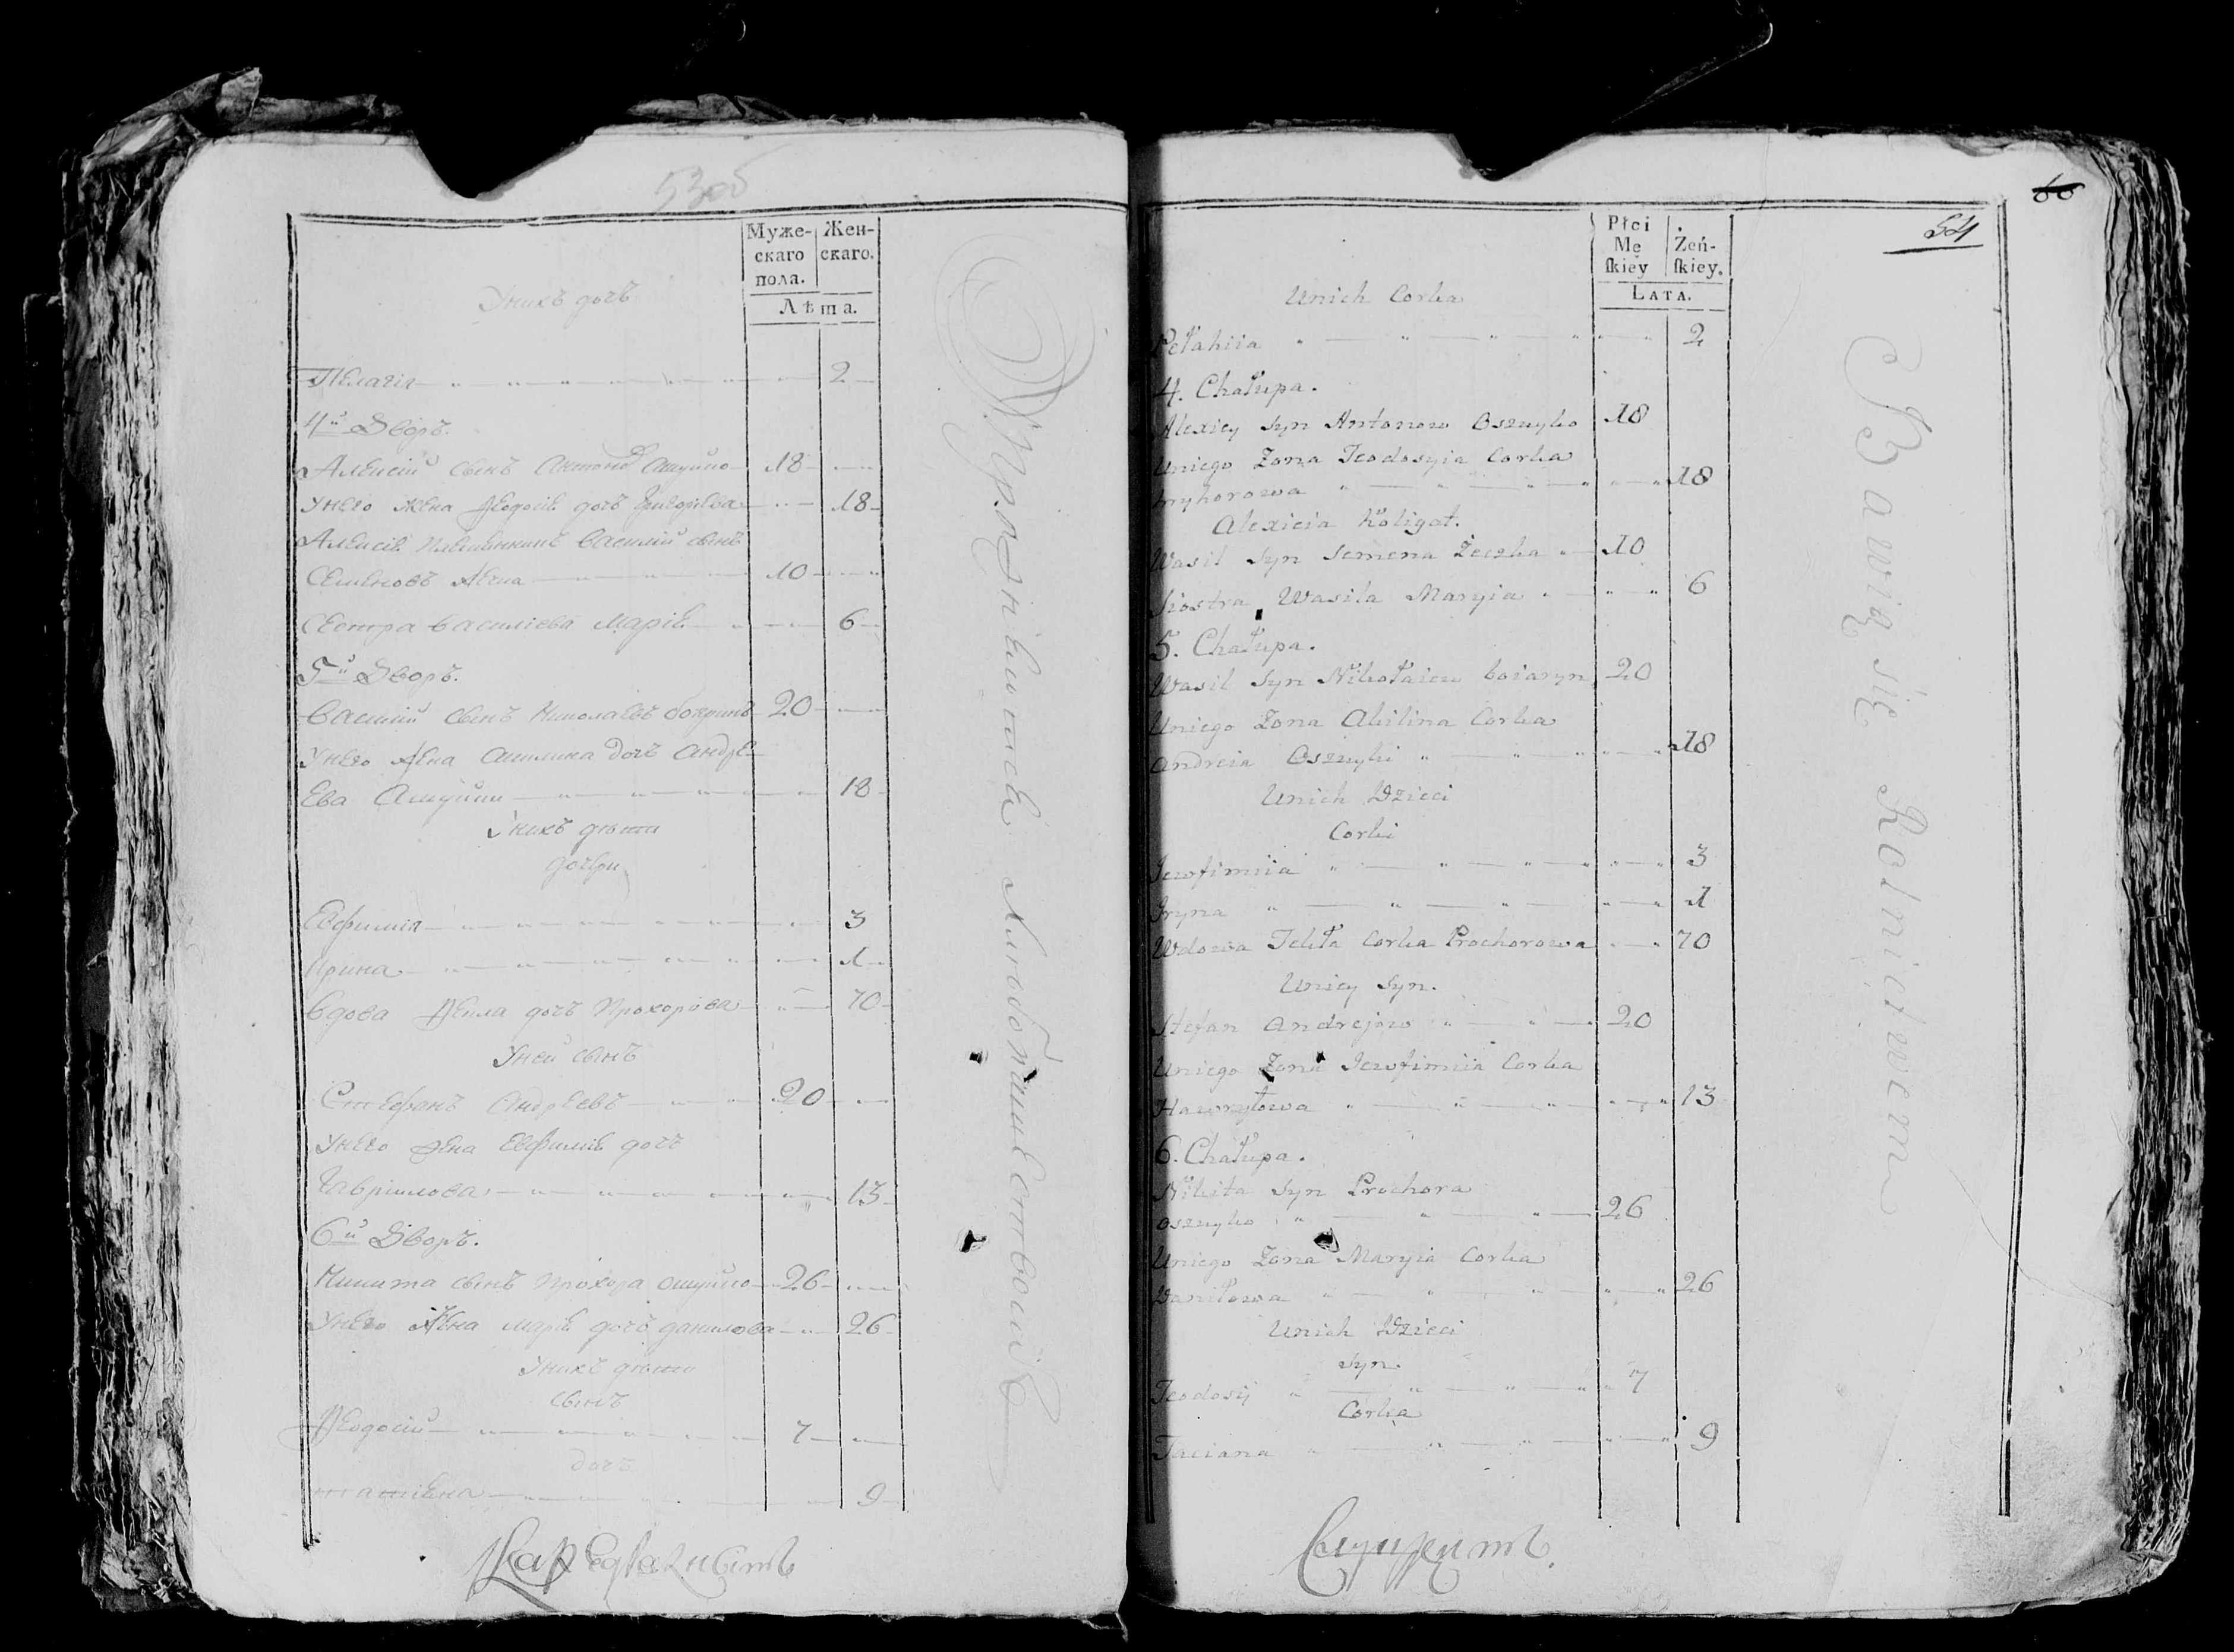 53об
Муже- Жен-
скаго скаго.
пола.
Лѣта.
Унихъ дочь
Пелагія 2
4й Дворъ.
Алексій сынъ Антоновъ Ошуйко 18
Унего жена Ѳеодосіѣ дочь Григорѣва 18
Алексіѣ Василій сынъ
Семѣновъ 10
Сестра Василіева Маріѣ 6
5й Дворъ.
Василій сынъ Николаевъ бояринъ 20
Унего жена Акилина дочь Андре-
ева Ошуйки 18
Унихъ дѣти
дочери
Евфимія 3
Ирина 1
Вдова Ѳекла дочь Прохорова 70
Уней сынъ
Стефанъ Андреевъ 20
Унего жена Евфиміѣ дочь
Гавріилова 13
6й Дворъ.
Никита сынъ Прохора Ошуйко 26
Унего жена Маріѣ дочь Данилова 26
Унихъ дѣти
сынъ
Ѳеодосій 7
дочь
татіѣна 9
Упражнѣются Хлебопашествомъ
60
54
Płci
Mę Żeń-
ſkiey ſkiey.
LATA.
Unich Corka
Pełahiia 2
4. Chałupa.
Alexiey Syn Antonow Osznyko 18
Uniego Zona Teodosyia Corka
Hryhorowa 18
Alexieia Koligat.
Wasil Syn Semena Zeczka 10
Siostra Wasila Maryia 6
5. Chałupa.
Wasil Syn Nikołaiew boiaryn 20
Uniego Zona Akilina Corka
Andreia Osznyki 18
Unich Dzieci
Corki
Jewfimiia 3
Iryna 1
Wdowa Tekła Corka Prochorowa 70
Uniey Syn.
Stefan Andrejew 20
Uniego Zona Jewfimiia Corka
Hawryłowa 13
6. Chałupa.
Nikita Syn Prochora
Osznyko 26
Uniego Zona Maryia Corka
Daniłowa 26
Unich Dzieci
Syn.
Teodosij 7
Corka
Taciana 9
Bawią się Rolnictwem